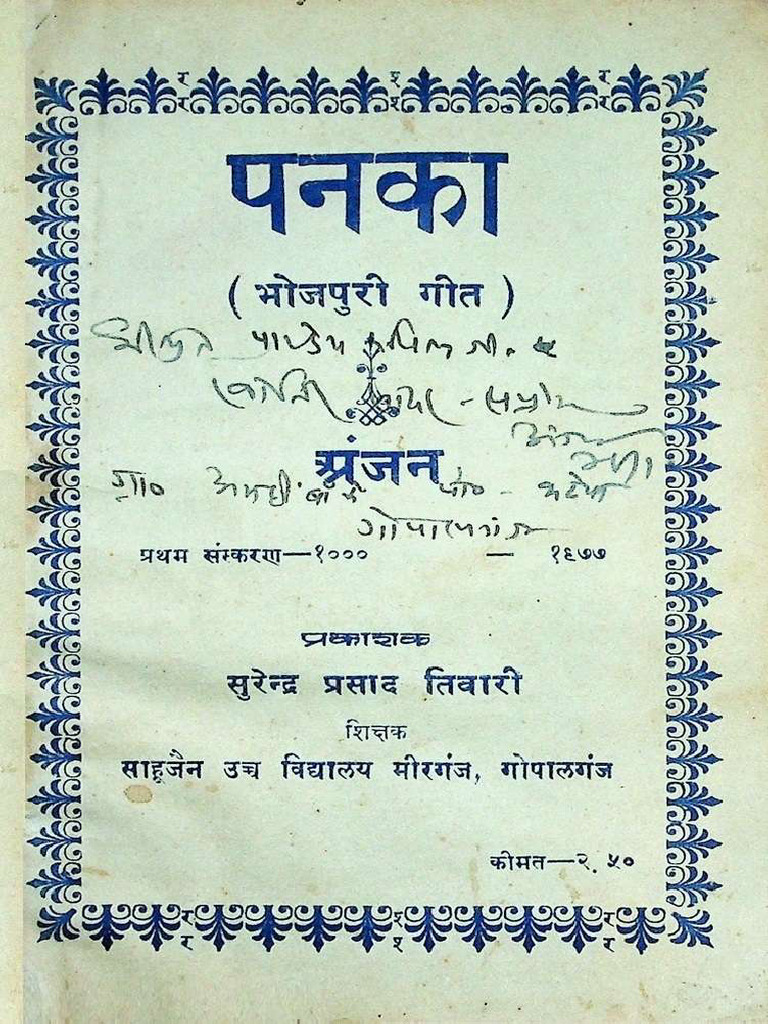 पनका
( भोजपुरी गीत )
पाण्डेय कपिल जी
सादर - सप्रेम
अंजन
ग्रा० पो० -
गोपालगंज
प्रथम संस्करण—१००० — १९७७
प्रकाशक
सुरेन्द्र प्रसाद तिवारी
शिक्षक
साहूजैन उच्च विद्यालय मीरगंज, गोपालगंज
कीमत—२. ५०